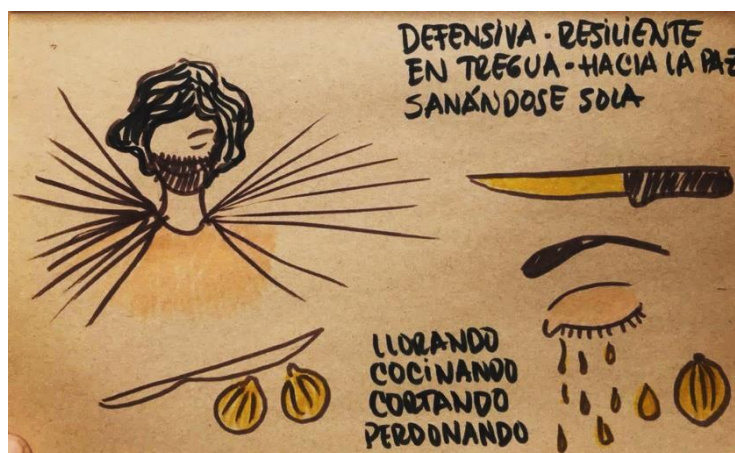 DEFENSIVA · RESILIENTE
EN TREGUA · HACIA LA PAZ
SANÁNDOSE SOLA
LLORANDO
COCINANDO
CORTANDO
PERDONANDO